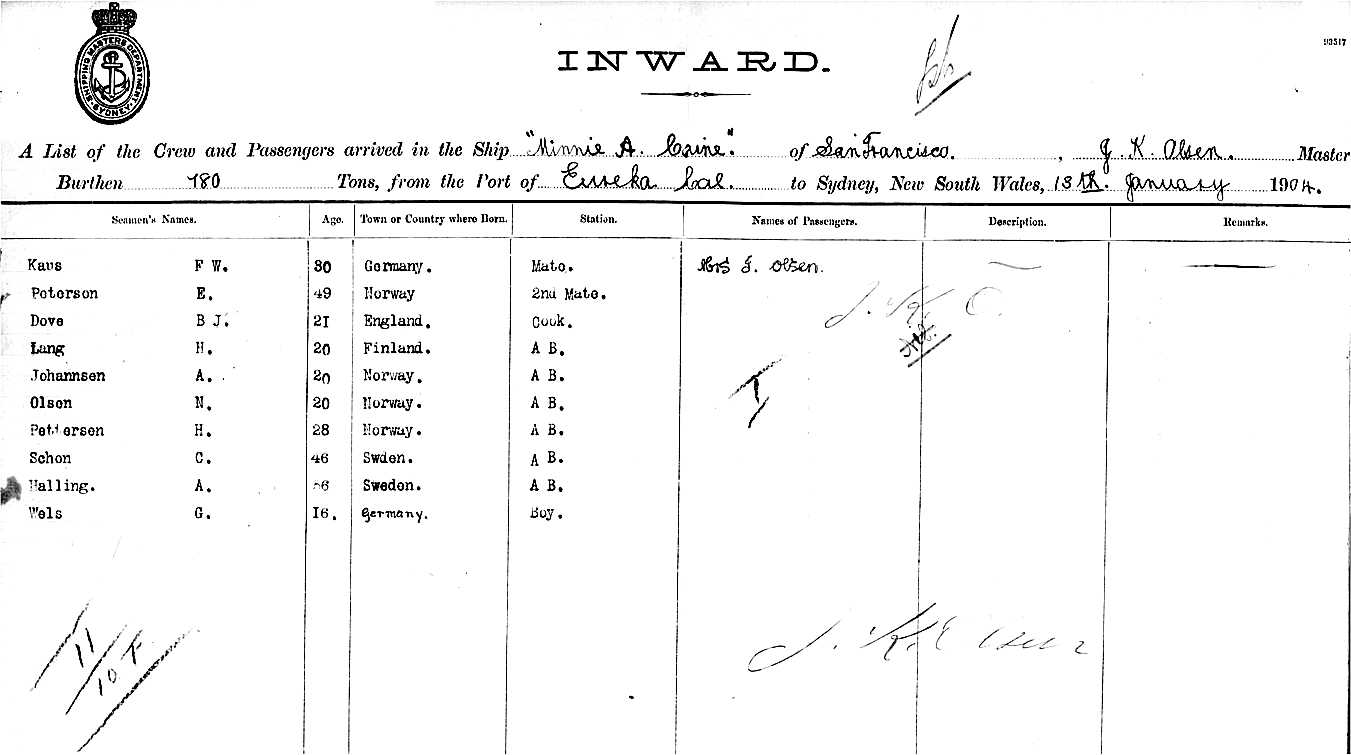 93517
SHIPPING MASTERS DEPARTMENT SYDNEY
INWARD.
A List of the Crew and Passengers arrived in the Ship "Minnie A. Caine". of San Francisco. , J. K. Olsen. Master
Burthen 780 Tons, from the Port of Eureka Cal. to Sydney, New South Wales, 13th. January 1904.
Seamen's Names. Age. Town or Country where Born. Station. Names of Passengers. Description. Remarks.
Kaus F W. 30 Germany. Mate. Mrs J. Olsen.
Peterson E. 49 Norway 2nd Mate.
Dove B J. 21 England. Cook.
Lang H. 20 Finland. A B.
Johannsen A. 20 Norway. A B.
Olsen N. 20 Norway. A B.
Pettersen H. 28 Norway. A B.
Schon C. 46 Swden. A B.
Halling. A. 6 Sweden. A B.
Wels G. 16. Germany. Boy.
J. K. O.
I
11
10 F
J. K. Olsen